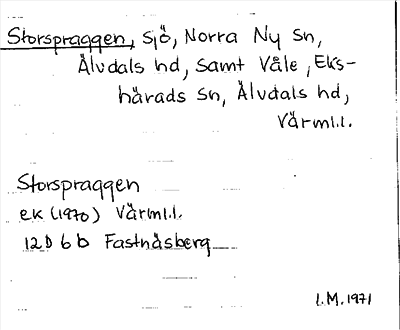 Storspraggen, sjö, Norra Ny sn,
Älvdals hd, samt Våle, Eks-
härads sn, Älvdals hd,
Värml.l.
Storspraggen
ek (1970) Värml.l.
12D 6 b Fastnäsberg
I.M. 1971